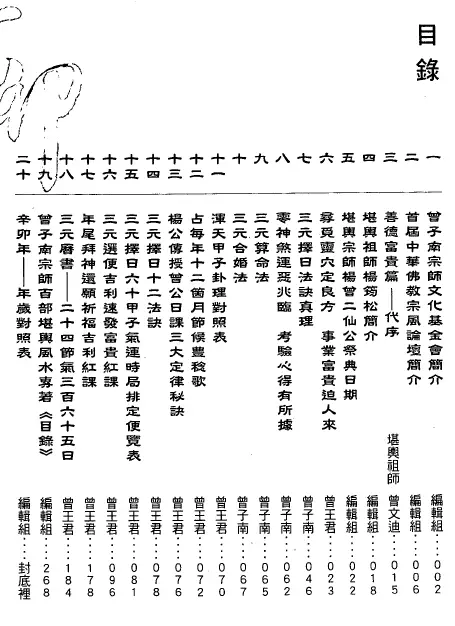 目錄
一 曾子南宗師文化基金會簡介 編輯組‥‥002
二 首屆中華佛教宗風論壇簡介 編輯組‥‥006
三 善德富貴篇——代序 堪輿祖師 曾文迪‥‥015
四 堪輿祖師楊筠松簡介 編輯組‥‥018
五 堪輿宗師楊曾二仙公祭典日期 編輯組‥‥022
六 尋覓靈穴定良方 事業富貴迫人來 曾王君‥‥023
七 三元擇日法訣真理 曾子南‥‥046
八 零神煞運惡兆臨 考驗心得有所據 曾子南‥‥062
九 三元算命法 曾子南‥‥065
十 三元合婚法 曾子南‥‥067
十一 渾天甲子卦理對照表 曾王君‥‥070
十二 占每年十二箇月節候豐稔歌 曾王君‥‥072
十三 楊公傳授曾公日課三大定律秘訣 曾王君‥‥076
十四 三元擇日十二法訣 曾王君‥‥078
十五 三元擇日六十甲子氣運時局排定便覽表 曾王君‥‥081
十六 三元選便吉利速發富貴紅課 曾王君‥‥096
十七 年尾拜神還願祈福吉利紅課 曾王君‥‥178
十八 三元曆書——二十四節氣三百六十五日 曾王君‥‥184
十九 曾子南宗師百部堪輿風水專著《目錄》 編輯組‥‥268
二十 辛卯年——年歲對照表 編輯組‥‥封底裡